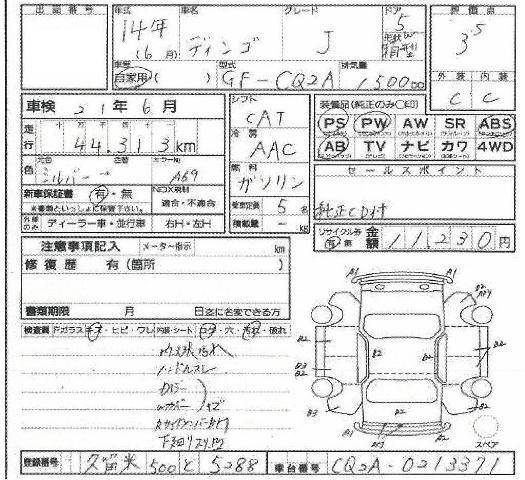 出品番号 年式 車名 グレード ドア 評価点
14年 (6月) ディンゴ J 5 3.5
車歴 型式 排気量 外装 内装
自家用 ( ) GF-CQ2A 1500cc C C
車検 21年6月 シフト CAT 装備品(純正のみ○印)
走行 44,313km 冷房 AAC PS PW AW SR ABS
AB TV ナビ カワ 4WD
色 元色 色替 カラーNo. 燃料 ガソリン
シルバー A69 セールスポイント
新車保証書 有・無 NOX規制 適合・不適合 乗車定員 5名
※書類といっしょに保管下さい。 純正CD付
外車のみ ディーラー車・並行車 右H・左H 積載量 - kg リサイクル券 有 無 金額 11,230円
注意事項記入 メーター指示 km
修復歴 有(箇所 )
書類期限 月 日迄に名変できる方
検査員 Fガラス キズ・ヒビ・ワレ 内装・シート コゲ・穴・汚れ・破れ
ハンドルスレ
キズ
下廻りスリ
A1 A1 B2 B2 B2 B2 B3 B3 B2 B2 A1 A1
スペア
登録番号 久留米 500 と 5288 車台番号 CQ2A-0213371